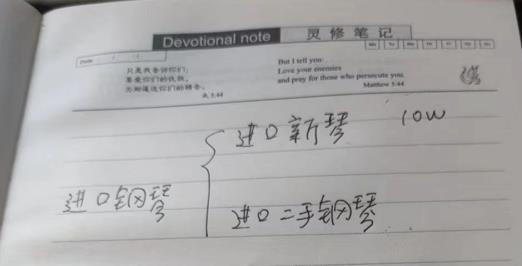 Devotional note 灵修笔记
Date
只是我告诉你们，
要爱你们的仇敌，
为那逼迫你们的祷告。
太 5:44
But I tell you:
Love your enemies
and pray for those who persecute you.
Matthew 5:44
进口新琴 10W
进口钢琴
进口二手钢琴